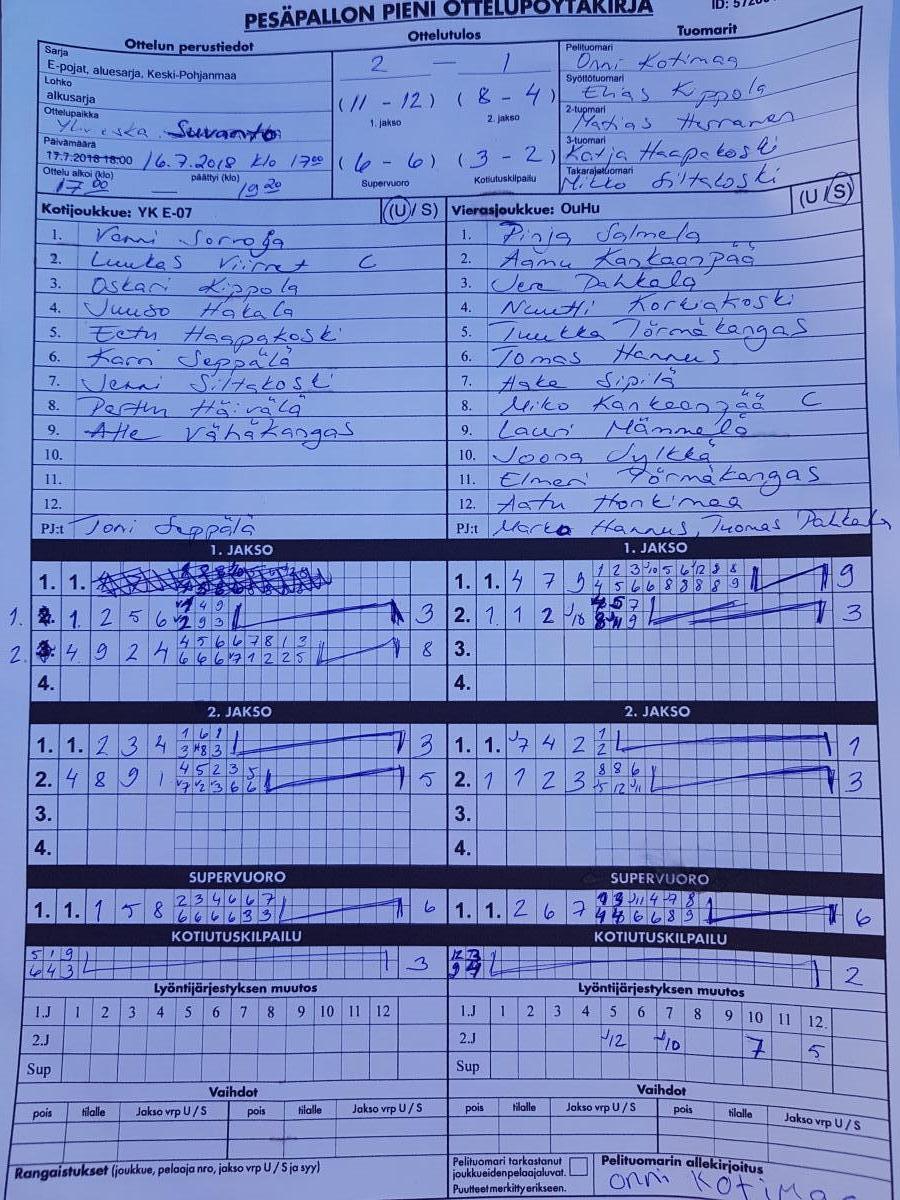 PESÄPALLON PIENI OTTELUPÖYTÄKIRJA
ID:
Ottelun perustiedot
Sarja
E-pojat, aluesarja, Keski-Pohjanmaa
Lohko
alkusarja
Ottelupaikka
Suvanto
Päivämäärä
17.7.2018 18:00 16.7.2018 klo 1700
Ottelu alkoi (klo) päättyi (klo)
17 00 — 19 20
Ottelutulos
2 — 1
(11 - 12) (8 - 4)
1. jakso 2. jakso
(6 - 6) (3 - 2)
Supervuoro Kotiutuskilpailu
Tuomarit
Pelituomari
Onni Kotimaa
Syöttötuomari
Elias Kippola
2-tuomari
Matias Herranen
3-tuomari
Katja Haapakoski
Takarajatuomari
Mikko Siltakoski
Kotijoukkue: YK E-07 (U / S)
1. Venni Sorvoja
2. Luukas Viirret C
3. Oskari Kippola
4. Juuso Hakala
5. Eetu Haapakoski
6. Karri Seppälä
7. Jenni Siltakoski
8. Perttu Häivälä
9. Atte Vähäkangas
10.
11.
12.
PJ:t Toni Seppälä
Vierasjoukkue: OuHu (U / S)
1. Pinja Salmela
2. Aamu Kankaanpää
3. Jere Pahkala
4. Nuutti Korkiakoski
5. Tuukka Törmäkangas
6. Tomas Hannus
7. Aake Sipilä
8. Miko Kankaanpää C
9. Lauri Mämmelä
10. Joona Jylkkä
11. Elmeri Törmäkangas
12. Aatu Honkimaa
PJ:t Marko Hannus, Tuomas Pahkala
1. JAKSO
1. 1.
1. 1. 2 5 6 3
2. 4 9 2 4 4 5 6 6 7 8 1 3 8
6 6 6 7 1 2 2 5
4.
1. JAKSO
1. 1. 4 7 9 1 2 3 J10 5 6 J12 8 8 9
4 5 6 6 8 8 8 8 9
2. 1 1 2 J10 3
3.
4.
2. JAKSO
1. 1. 2 3 4 1 6 1 3
3 8 3
2. 4 8 9 1 4 5 2 3 5 5
7 2 3 6 6
3.
4.
2. JAKSO
1. 1. J7 4 2 1 1
2
2. 1 1 2 3 8 8 6 3
5 12 J11
3.
4.
SUPERVUORO
1. 1. 1 5 8 2 3 4 6 6 7 6
6 6 6 6 3 3
SUPERVUORO
1. 1. 2 6 7 6
KOTIUTUSKILPAILU
5 1 9 3
6 4 3
KOTIUTUSKILPAILU
2
Lyöntijärjestyksen muutos
1.J 1 2 3 4 5 6 7 8 9 10 11 12
2.J
Sup
Lyöntijärjestyksen muutos
1.J 1 2 3 4 5 6 7 8 9 10 11 12.
2.J J12 J10 7 5
Sup
Vaihdot
pois tilalle Jakso vrp U / S pois tilalle Jakso vrp U / S
Vaihdot
pois tilalle Jakso vrp U / S pois tilalle Jakso vrp U / S
Rangaistukset (joukkue, pelaaja nro, jakso vrp U / S ja syy)
Pelituomari tarkastanut
joukkueiden pelaajaluvat.
Puutteet merkitty erikseen.
Pelituomarin allekirjoitus
Onni Kotimaa